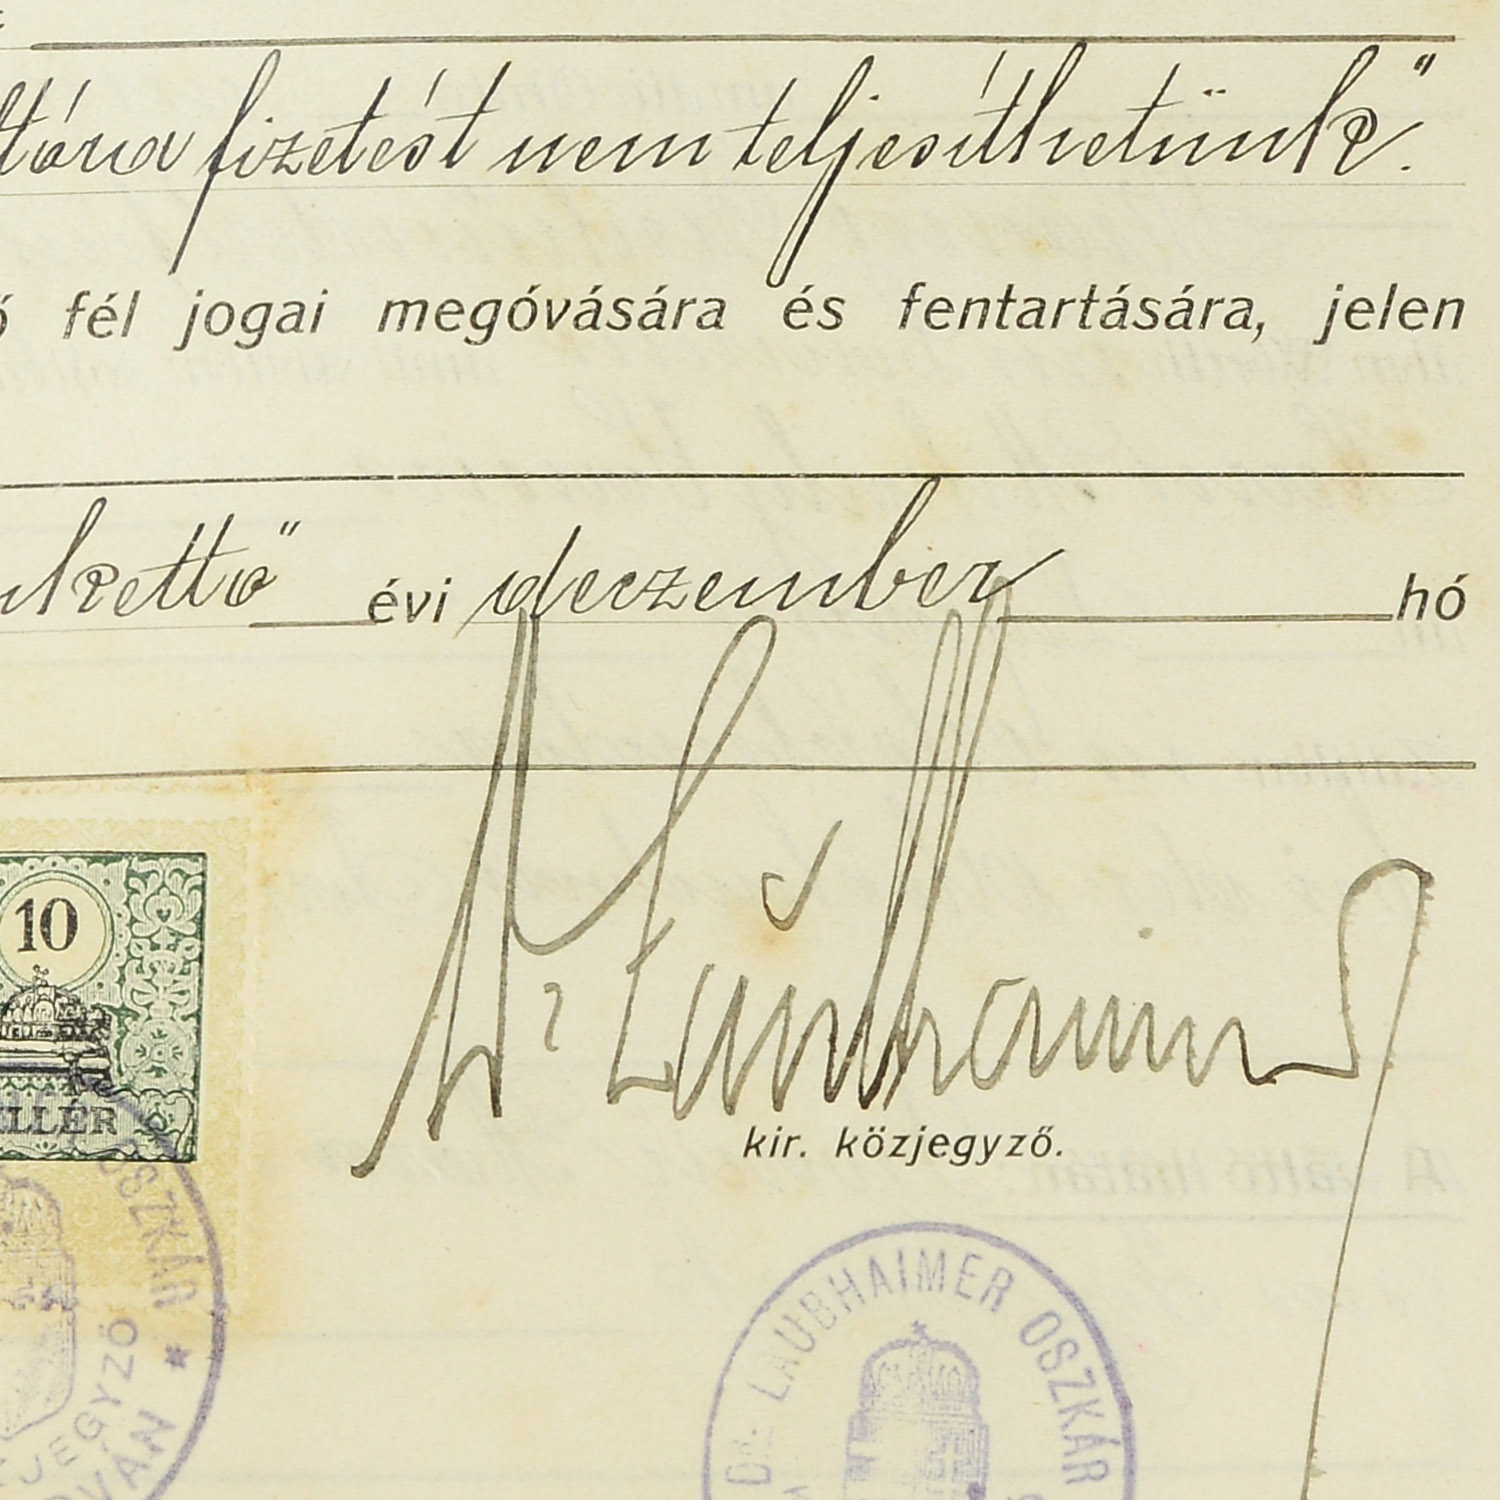 fizetést nem teljesíthetünk".
fél jogai megóvására és fentartására, jelen
évi deczember hó
10
Dr Laubhaimer
kir. közjegyző.
OSZKÁR
KÖZJEGYZŐ
DR. LAUBHAIMER OSZKÁR